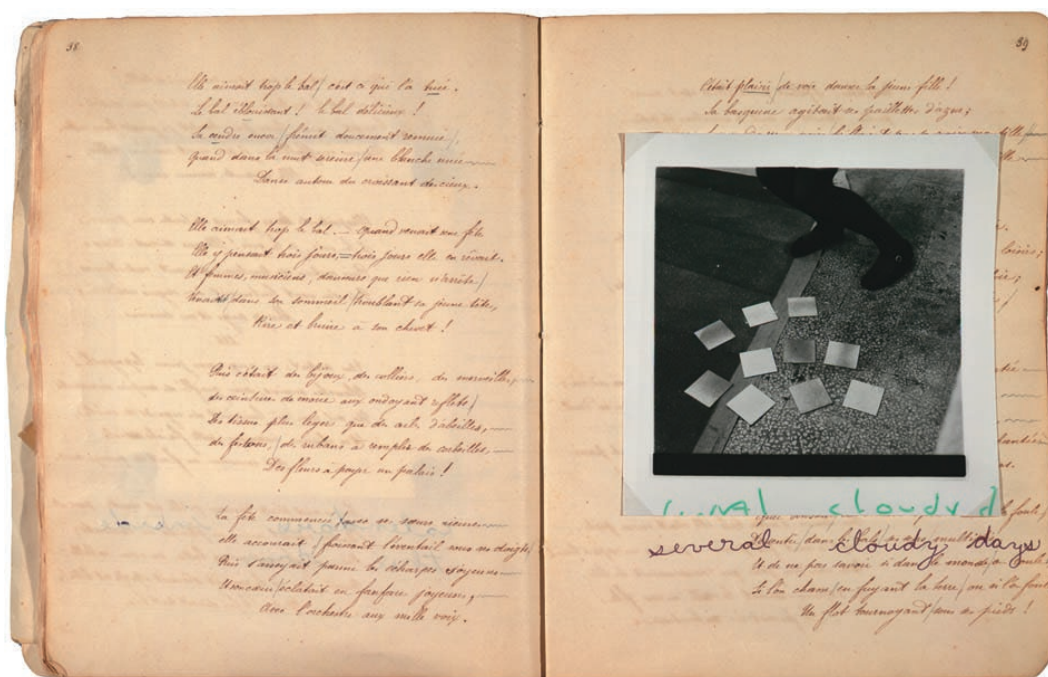 38
Elle aimait trop le bal / c'est ce qui l'a tuée.
Le bal éblouissant ! le bal délicieux !
Sa cendre encor / frémit doucement remuée /,
Quand dans la nuit sereine / une blanche nuée
Danse autour du croissant des cieux.
Elle aimait trop le bal. — quand venait une fête
Elle y pensait trois jours, = trois jours elle en rêvait.
Et femmes, musiciens, danseurs que rien n'arrête /
Venaient / dans son sommeil / troublant sa jeune tête,
Rire et bruire à son chevet !
Puis c'était des bijoux, des colliers, des merveilles,
des ceintures de moire aux ondoyant reflets /
Des tissus plus légers que des ailes d'abeilles,
des festons, / des rubans à remplir des corbeilles,
Des fleurs à payer un palais !
La fête commencée, avec ses sœurs rieuses
elle accourait / froissant l'éventail sous ses doigts /
Puis s'asseyait parmi les écharpes soyeuses
Et son cœur / éclatait en fanfare joyeuses,
Avec l'orchestre aux mille voix.
39
C'était plaisir / de voir danser la jeune fille !
Sa basquine agitait ses paillettes d'azur ;
fille
loisirs ;
cloudy d
foule,
several cloudy days
Et de ne pas savoir si dans le monde
Si l'on chasse / en fuyant la terre / ou si l'on foule
Un flot tournoyant / sous ses pieds !